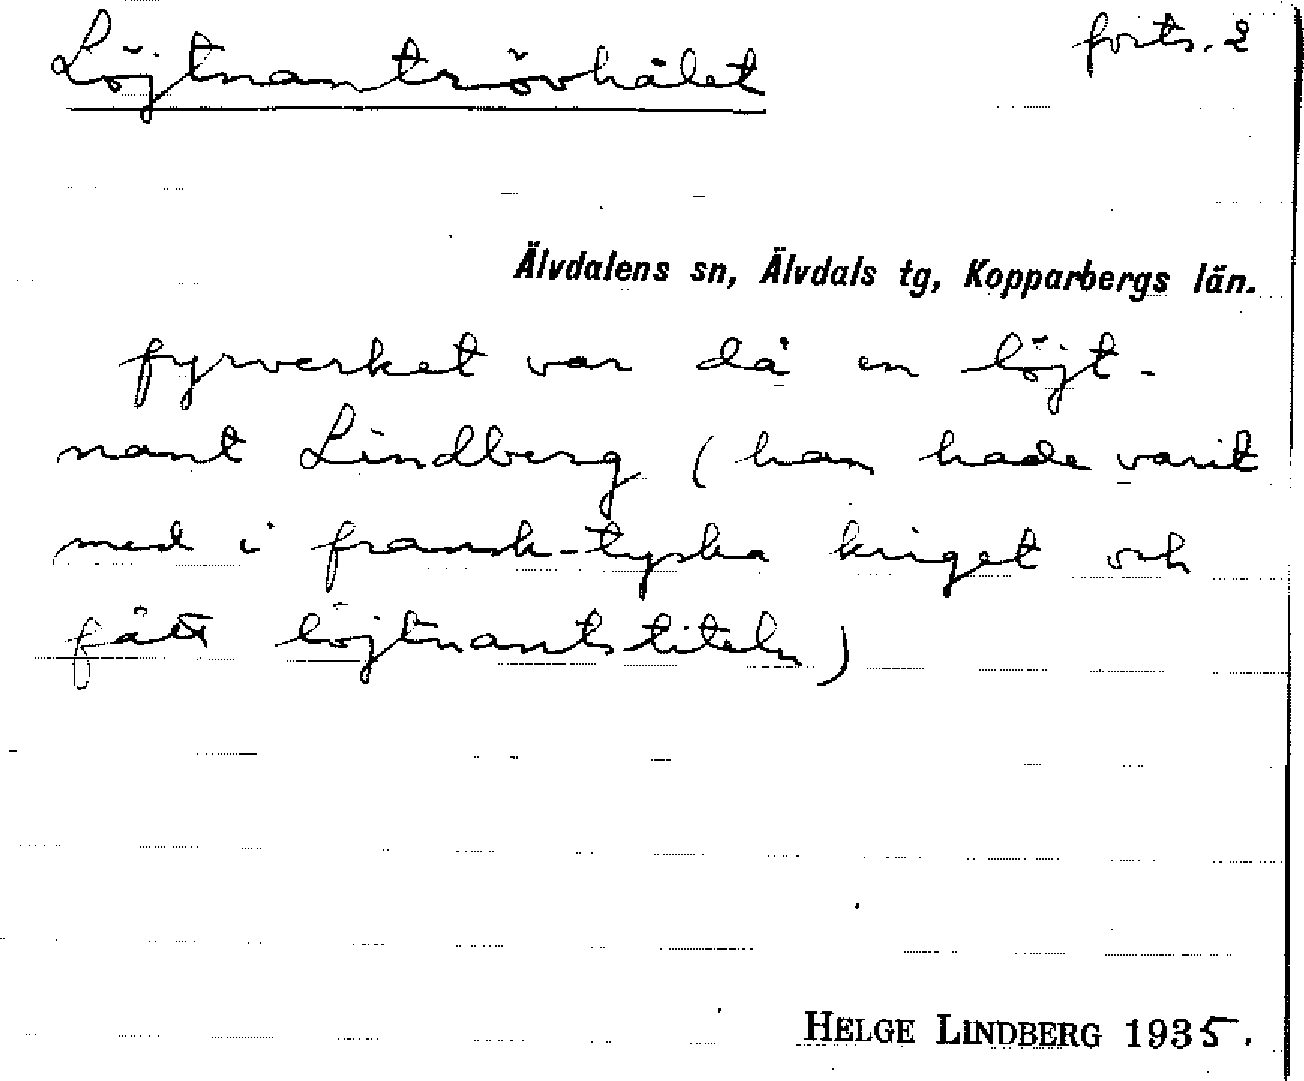 Löjtnantrövhålet forts. 2
Älvdalens sn, Älvdals tg, Kopparbergs län.
fyrverket var då en löjt-
nant Lindberg (han hade varit
med i fransk-tyska kriget och
fått löjtnantstiteln)
HELGE LINDBERG 1935.